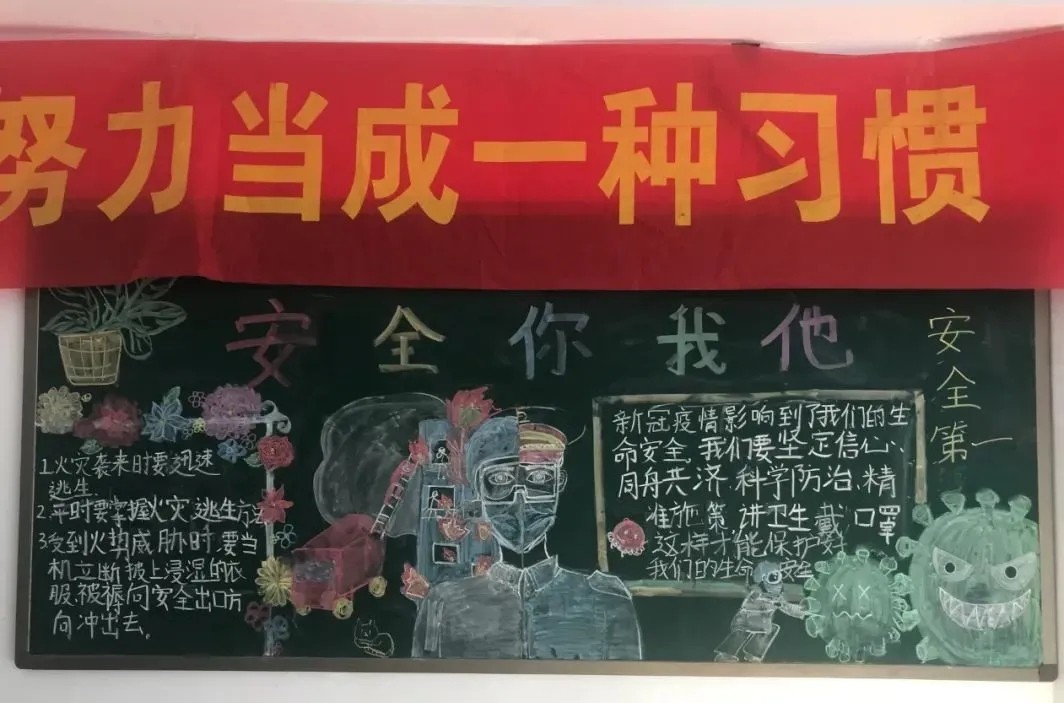 努力当成一种习惯
安全你我他
安全第一
1.火灾袭来时要迅速
逃生
2.平时要掌握火灾逃生方法
3.受到火势威胁时要当
机立断披上浸湿的衣
服、被褥向安全出口方
向冲出去。
新冠疫情影响到了我们的生
命安全,我们要坚定信心、
同舟共济、科学防治、精
准施策,讲卫生戴口罩
这样才能保护好
我们的生命安全